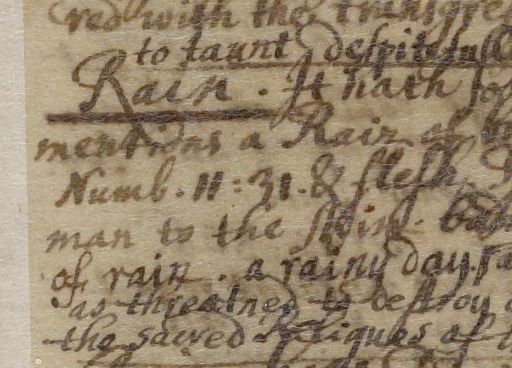 red with the transgre
to taunt despitefull
Rain. It hath so
mentions a Rain of
Numb. 11:31. & flesh
man to the skin.
of rain. a rainy day.
as threatned to destroy
the sacred Reliques of